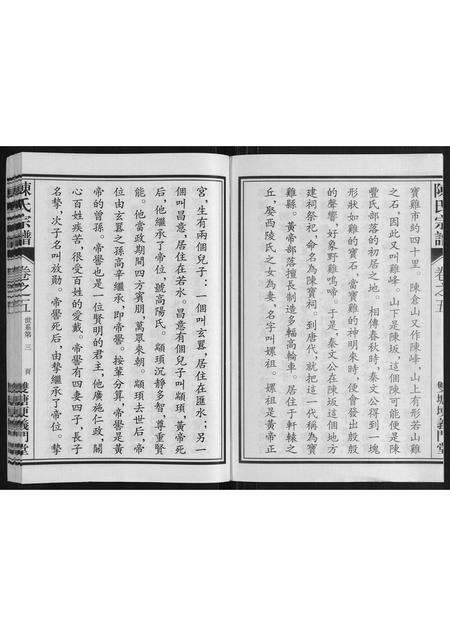 陳氏宗譜
卷之五
雙塘埂義門堂
寶雞市約四十里。陳倉山又作陳峰，山上有形若山雞
之石，因此又叫雞峰。山下是陳坂，這個陳可能便是陳
豐氏部落的初居之地。相傳春秋時，秦文公得到一塊
形狀如雞的寶石，當寶雞的神明來時，便會發出殷殷
的聲響，好象野雞鳴啼。于是，秦文公在陳坂這個地方
建祠祭祀，命名為陳寶祠。到唐代，就把這一代稱為寶
雞縣。黃帝部落擅長制造多輻高輪車。居住于軒轅之
丘，娶西陵氏之女為妻，名字叫嫘祖。嫘祖是黃帝正
宮，生有兩個兒子：一個叫玄囂，居住在匯水；另一
個叫昌意，居住在若水。昌意有個兒子叫顓頊，黃帝死
后，他繼承了帝位，號高陽氏。顓頊沉靜多智，尊重賢
能。他當政期間四方賓朋，萬眾來朝。顓頊去世后，帝
位由玄囂之孫高辛繼承，即帝嚳。按輩分算，帝嚳是黃
帝的曾孫。帝嚳也是一位賢明的君主，他廣施仁政，關
心百姓疾苦，很受百姓的愛戴。帝嚳有四妻四子，長子
名摯，次子名叫放勛。帝嚳死后，由摯繼承了帝位。摯
陳氏宗譜
卷之五
世系第三
頁
雙塘埂義門堂